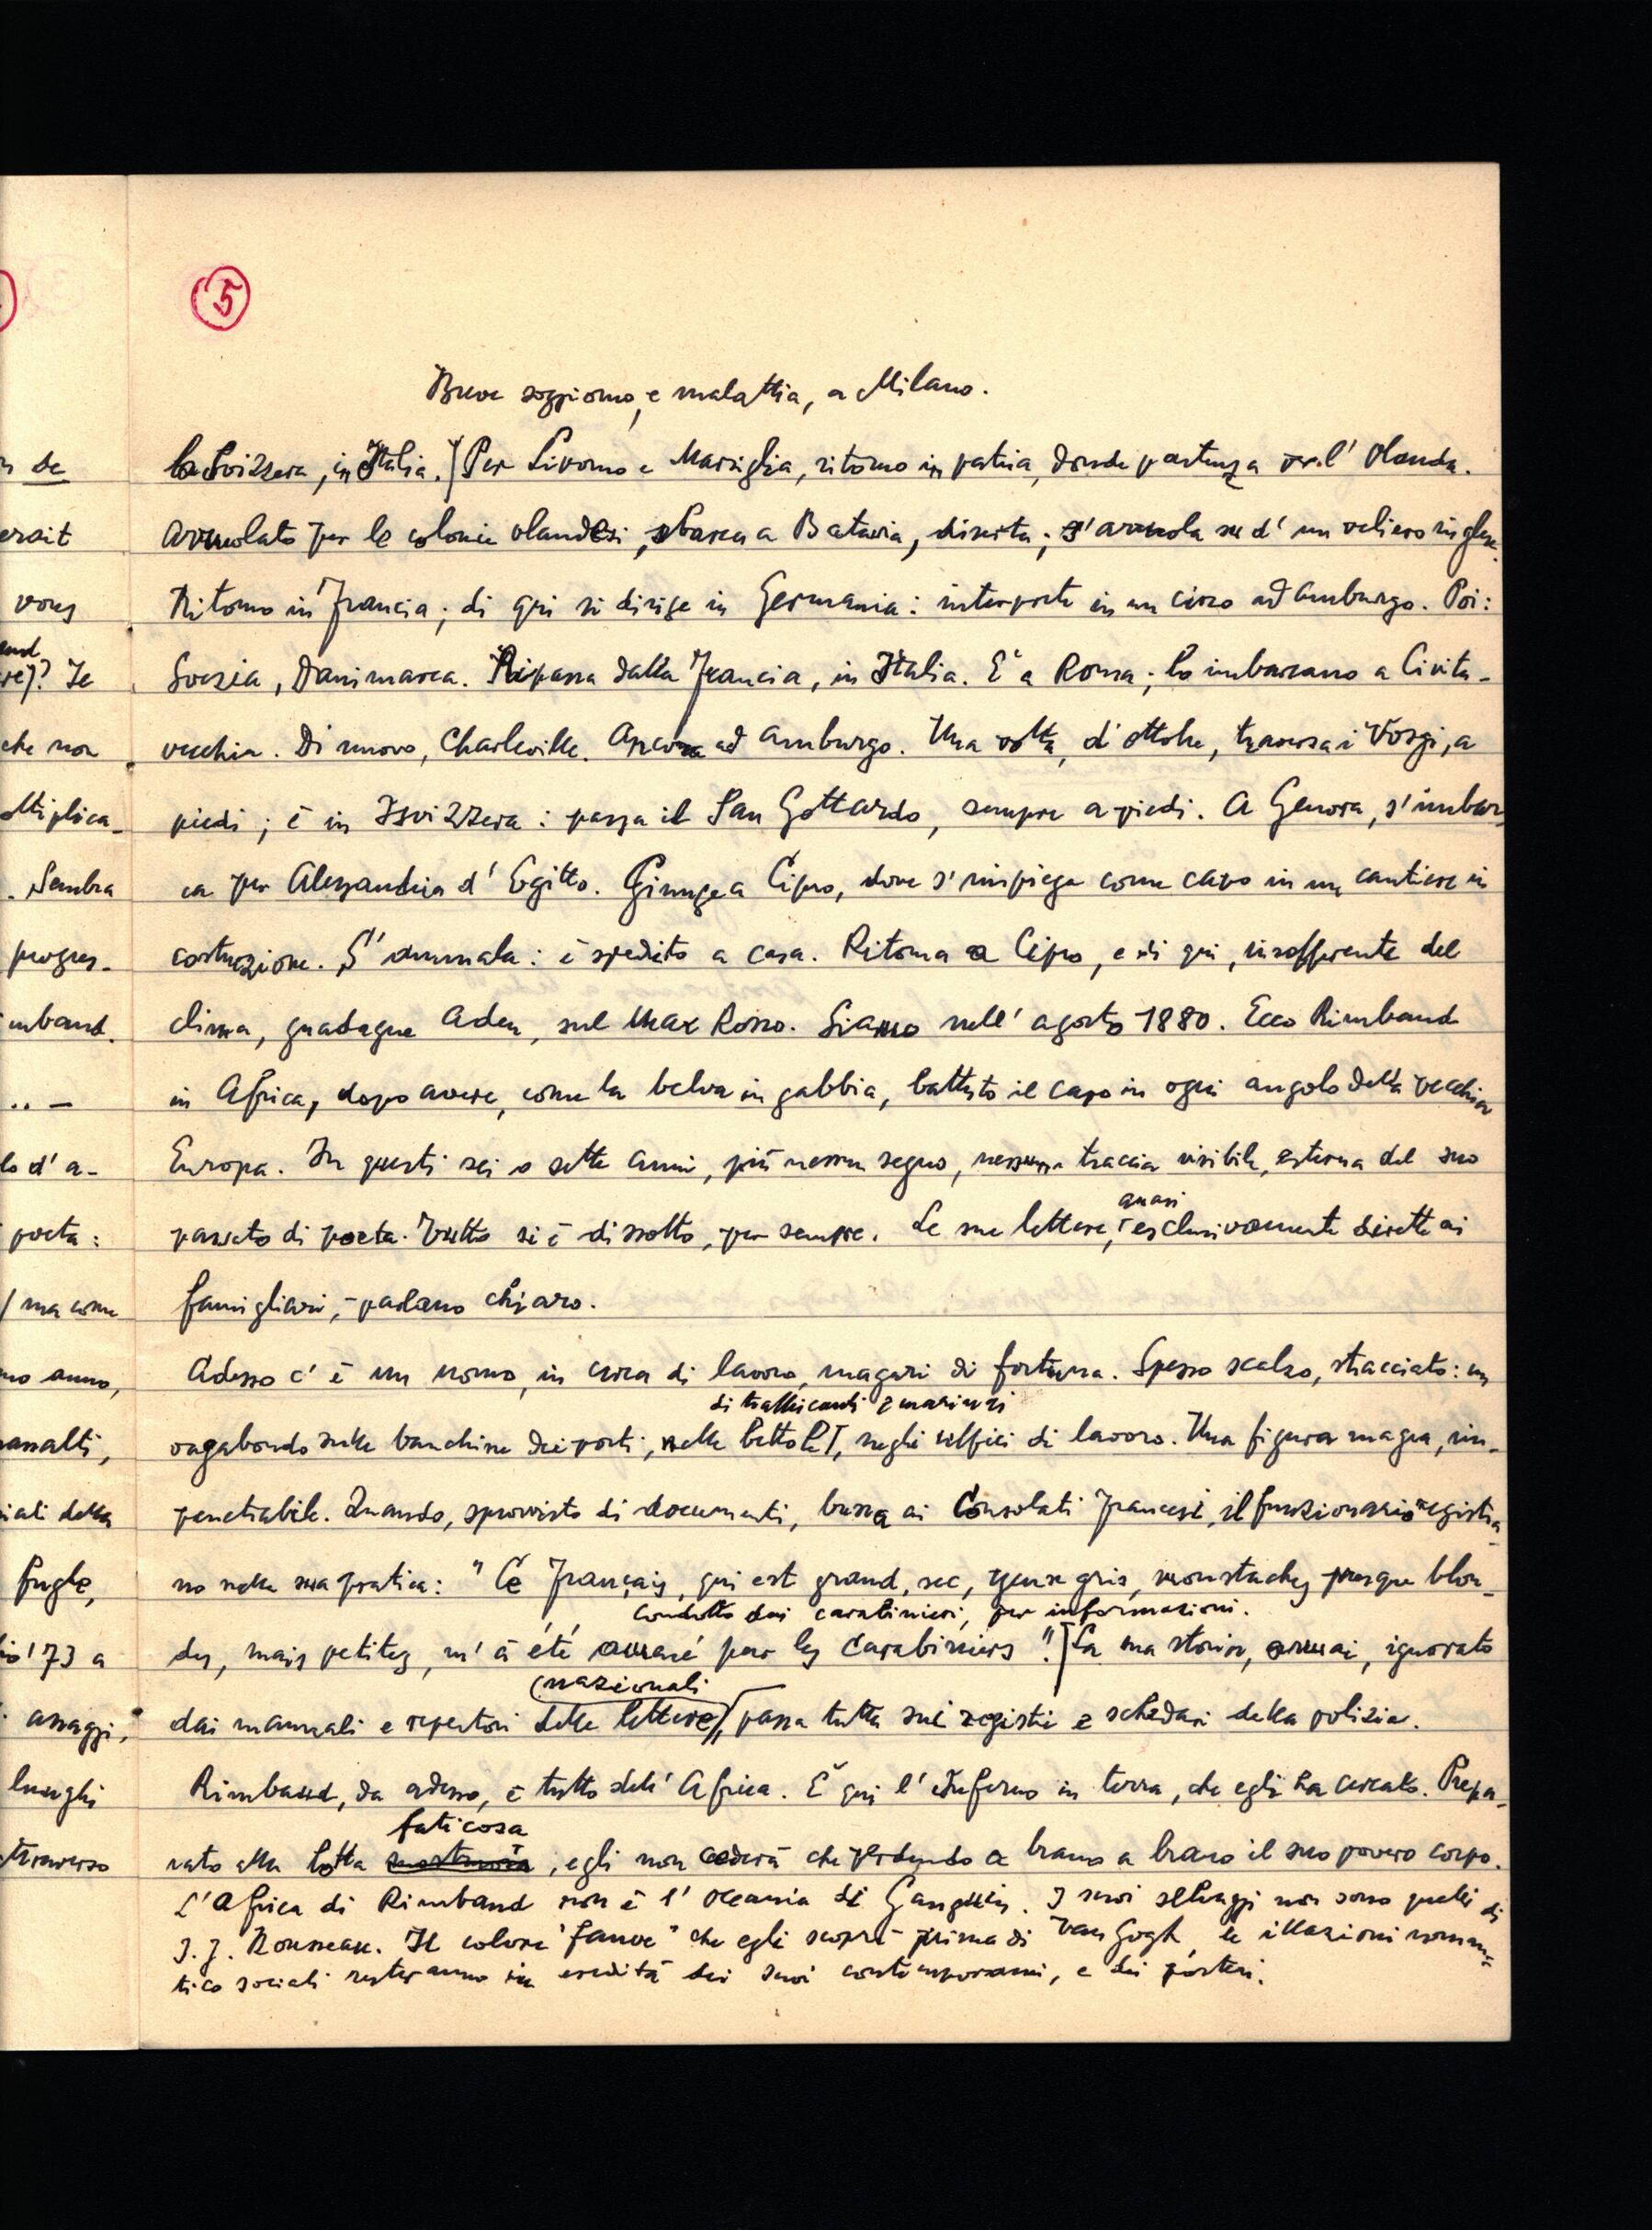 5
Breve soggiorno, e malattia, a Milano.
la Svizzera, in Italia. Per Livorno e Marsiglia, ritorno in patria, donde partenza per l' Olanda.
Arruolato per le colonie olandesi, sbarca a Batavia, diserta; s'arruola su d' un veliero inglese.
Ritorno in Francia; di qui si dirige in Germania: interprete in un circo ad Amburgo. Poi:
Svezia, Danimarca. Ripassa dalla Francia, in Italia. E' a Roma; lo imbarcano a Civita-
vecchia. Di nuovo, Charleville. Ancora ad Amburgo. Una volta, d'ottobre, traversa i Vosgi, a
piedi; è in Isvizzera: passa il San Gottardo, sempre a piedi. A Genova, s'imbar-
ca per Alessandria d' Egitto. Giunge a Cipro, dove s'impiega come capo in un cantiere in
costruzione. S' ammala: è spedito a casa. Ritorna a Cipro, e di qui, insofferente del
clima, guadagna Aden, sul Mar Rosso. Siamo nell' agosto 1880. Ecco Rimbaud
in Africa, dopo avere, come la belva in gabbia, battuto il capo in ogni angolo della vecchia
Europa. In questi sei o sette anni, più nessun segno, nessuna traccia visibile, esterna del suo
quasi
passato di poeta. Tutto si è dissolto, per sempre. Le sue lettere, esclusivamente dirette ai
famigliari, parlano chiaro.
Adesso c' è un uomo, in cerca di lavoro, magari di fortuna. Spesso scalzo, stracciato: un
di trafficanti e marinai
vagabondo sulle banchine dei porti, nelle bettole, negli uffici di lavoro. Una figura magra, im-
penetrabile. Quando, sprovvisto di documenti, bussa ai Consolati francesi, il funzionario registra
no nella sua pratica: "Ce Français, qui est grand, sec, yeux gris, moustaches presque blon-
condotto dai carabinieri, per informazioni.
des, mais petites, m' a été amené par les carabiniers". La sua storia, ormai, ignorato
nazionali
dai manuali e repertori delle lettere, passa tutta sui registri e schedari della polizia.
Rimbaud, da adesso, è tutto dell' Africa. E' qui l' inferno in terra, che egli ha cercato. Prepa-
faticosa
rato alla lotta , egli non cederà che perdendo a brano a brano il suo povero corpo.
L'Africa di Rimbaud non è l' Oceania di Gauguin. I suoi selvaggi non sono quelli di
J. J. Rousseau. Il colore "fauve" che egli scoprì prima di Van Gogh, le illazioni roman-
tico sociali resteranno in eredità dei suoi contemporanei, e dei posteri.